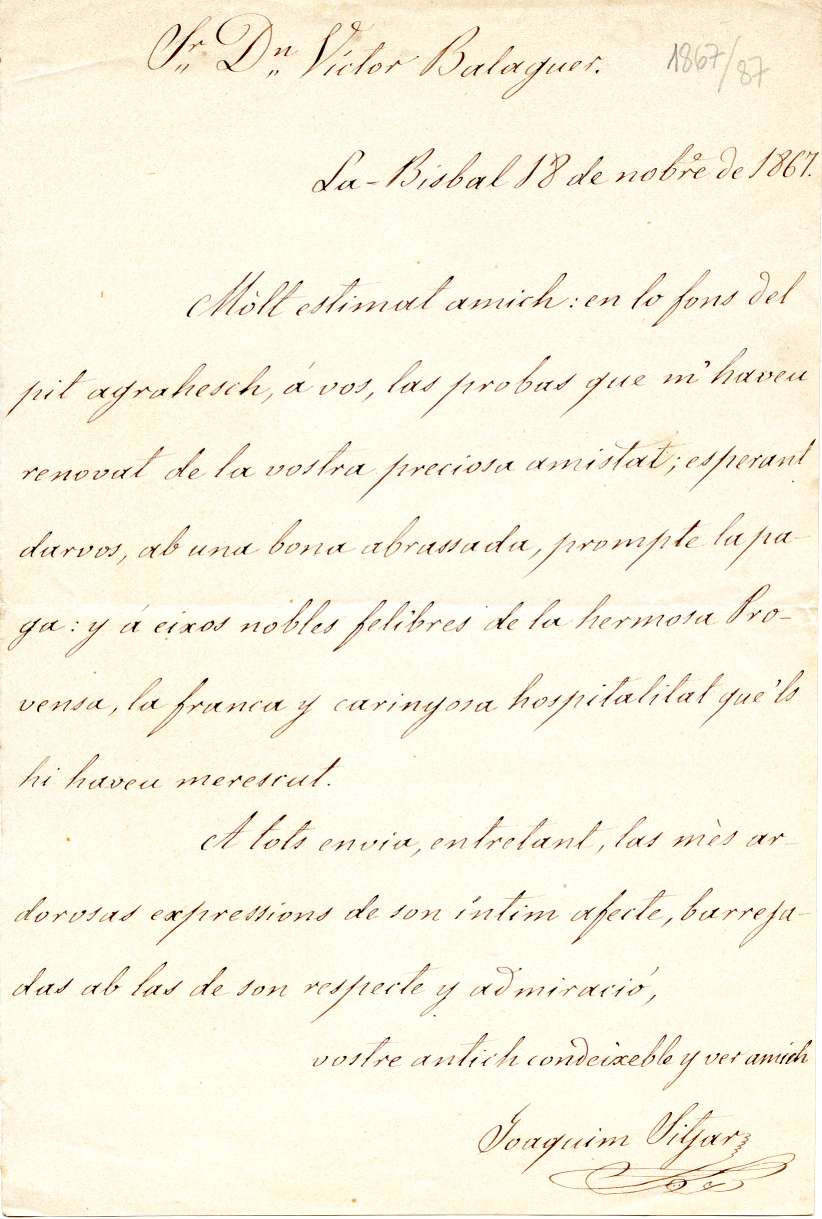 Sr. Dn. Víctor Balaguer.
1867/87
La-Bisbal 18 de nobre. de 1867.
Mòlt estimat amich: en lo fons del
pit agrahesch, á vos, las probas que m' haveu
renovat de la vostra preciosa amistat; esperant
darvos, ab una bona abrassada, prompte la pa-
ga: y á eixos nobles felibres de la hermosa Pro-
vensa, la franca y carinyosa hospitalitat que 'ls
hi haveu merescut.
A tots envia, entretant, las mès ar-
dorosas expressions de son íntim afecte, barreja-
das ab las de son respecte y admiració,
vostre antich condeixeble y ver amich
Joaquim Sitjar